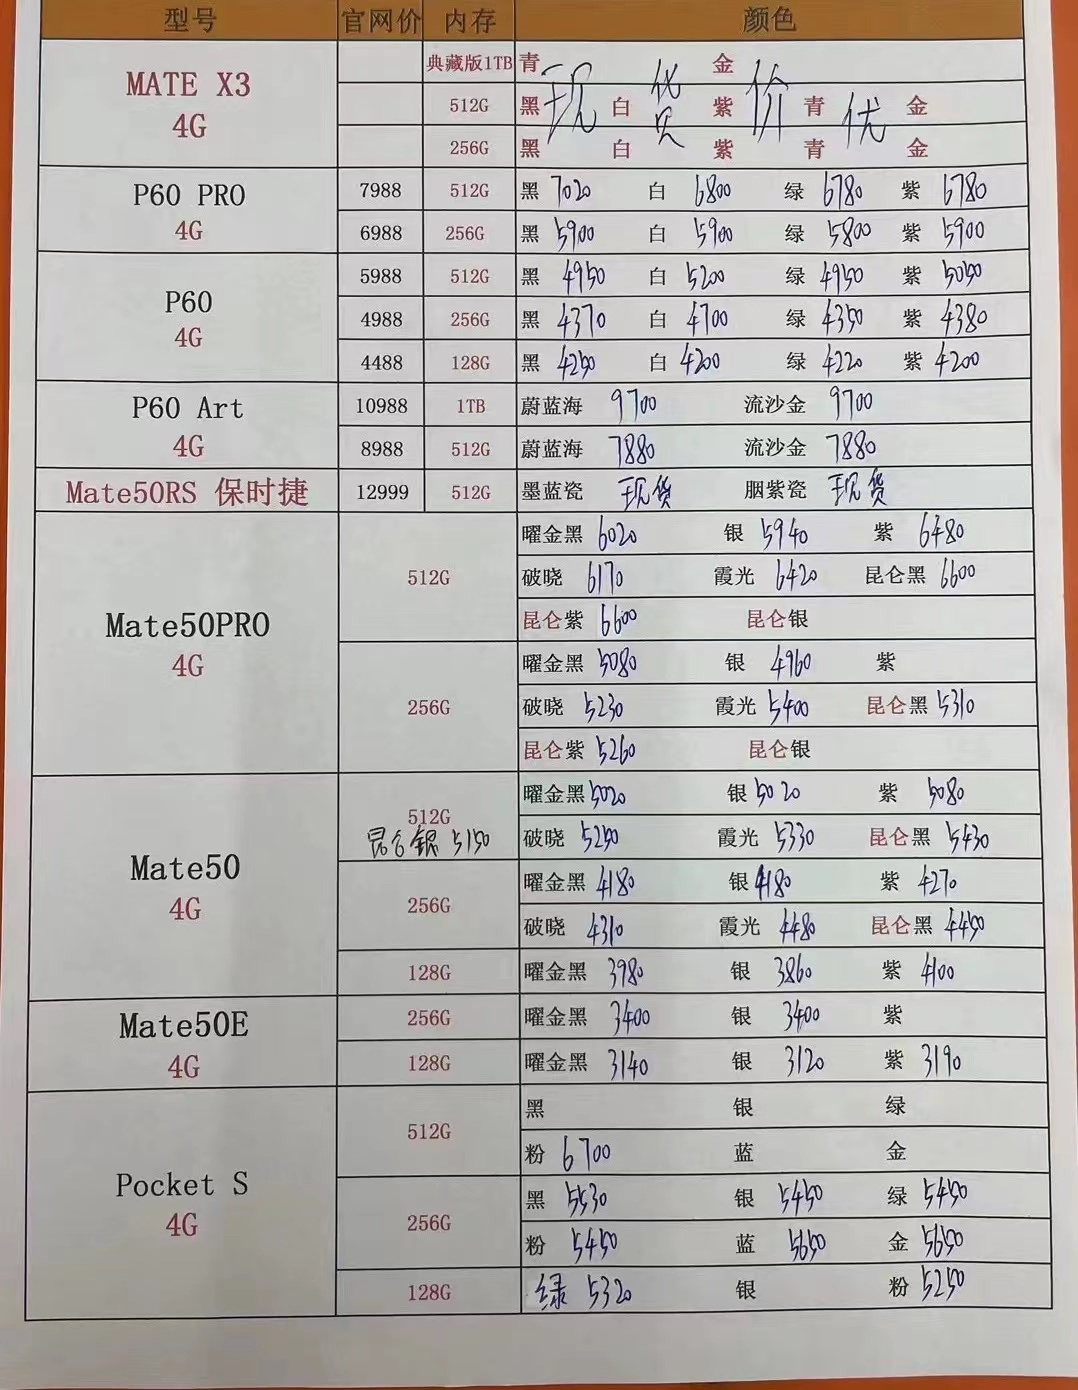 型号 官网价 内存 颜色
MATE X3 4G
典藏版1TB 青 金
512G 黑 白 紫 青 金
256G 黑 白 紫 青 金
现货价优
P60 PRO 4G
7988 512G 黑 7020 白 6800 绿 6780 紫 6780
6988 256G 黑 5900 白 5900 绿 5800 紫 5900
P60 4G
5988 512G 黑 4950 白 5200 绿 4950 紫 5050
4988 256G 黑 4370 白 4700 绿 4350 紫 4380
4488 128G 黑 4250 白 4200 绿 4220 紫 4200
P60 Art 4G
10988 1TB 蔚蓝海 9700 流沙金 9700
8988 512G 蔚蓝海 7880 流沙金 7880
Mate50RS 保时捷 12999 512G 墨蓝瓷 现货 胭紫瓷 现货
Mate50PRO 4G
512G
曜金黑 6020 银 5940 紫 6480
破晓 6170 霞光 6420 昆仑黑 6600
昆仑紫 6600 昆仑银
256G
曜金黑 5080 银 4960 紫
破晓 5230 霞光 5400 昆仑黑 5310
昆仑紫 5260 昆仑银
Mate50 4G
512G
昆仑银 5150
曜金黑 5020 银 5020 紫 5080
破晓 5250 霞光 5330 昆仑黑 5430
256G
曜金黑 4180 银 4180 紫 4270
破晓 4310 霞光 4480 昆仑黑 4450
128G 曜金黑 3980 银 3860 紫 4100
Mate50E 4G
256G 曜金黑 3400 银 3400 紫
128G 曜金黑 3140 银 3120 紫 3190
Pocket S 4G
512G
黑 银 绿
粉 6700 蓝 金
256G
黑 5530 银 5450 绿 5450
粉 5450 蓝 5650 金 5650
128G 绿 5320 银 粉 5250